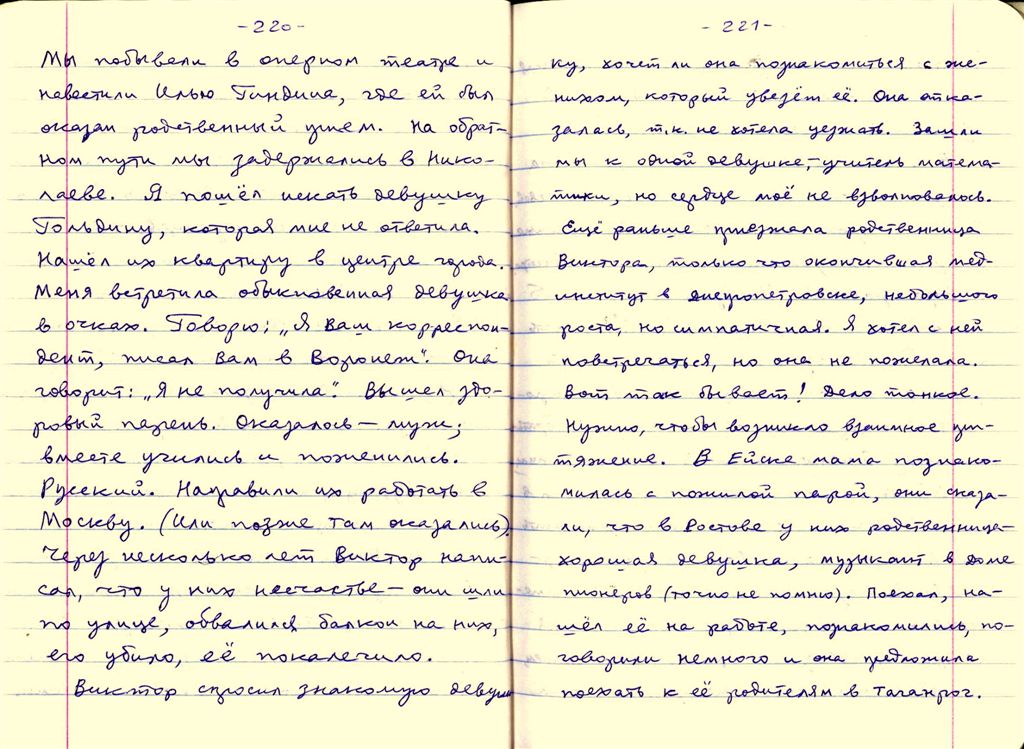 - 220 -
Мы побывали в оперном театре и
навестили Илью Гиндина, где ей был
оказан родственный приём. На обрат-
ном пути мы задержались в Нико-
лаеве. Я пошёл искать девушку
Гольдину, которая мне не ответила.
Нашёл их квартиру в центре города.
Меня встретила обыкновенная девушка
в очках. Говорю: „Я ваш корреспон-
дент, писал вам в Воронеж“. Она
говорит: „Я не получила“. Вышел здо-
ровый парень. Оказалось – муж;
вместе учились и поженились.
Русский. Направили их работать в
Москву. (Или позже там оказались).
Через несколько лет Виктор напи-
сал, что у них несчастье – они шли
по улице, обвалился балкон на них,
его убило, её покалечило.
Виктор спросил знакомую девуш-
- 221 -
ку, хочет ли она познакомиться с же-
нихом, который увезёт её. Она отка-
залась, т.к. не хотела уезжать. Зашли
мы к одной девушке, – учитель матема-
тики, но сердце моё не взволновалось.
Ещё раньше приезжала родственница
Виктора, только что окончившая мед-
институт в Днепропетровске, небольшого
роста, но симпатичная. Я хотел с ней
повстречаться, но она не пожелала.
Вот так бывает! Дело тонкое.
Нужно, чтобы возникло взаимное при-
тяжение. В Ейске мама познако-
милась с пожилой парой, они сказа-
ли, что в Ростове у них родственница-
хорошая девушка, музыкант в доме
пионеров (точно не помню). Поехал, на-
шёл её на работе, познакомились, по-
говорили немного и она предложила
поехать к её родителям в Таганрог.